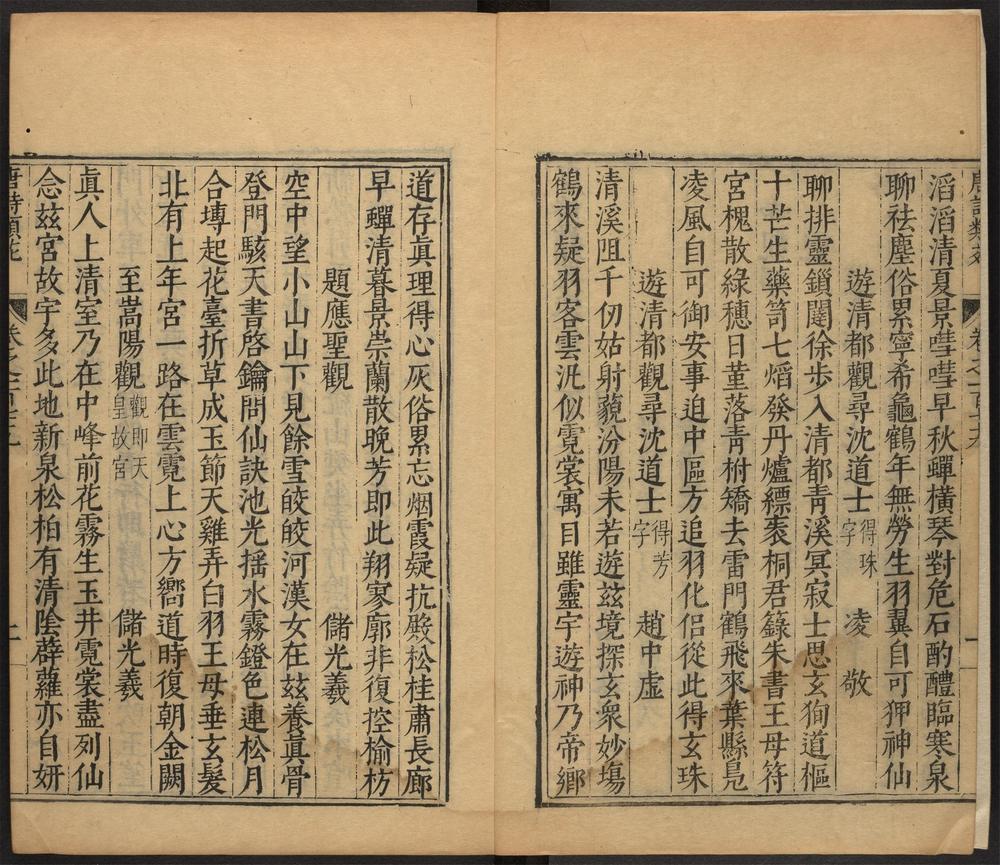 滔滔清夏景嘒嘒早秋蟬橫琴對危石酌醴臨寒泉
聊祛塵俗累寧希龜鶴年無勞生羽翼自可狎神仙
遊清都觀尋沈道士得珠字 凌敬
聊排靈鎖闥徐步入清都靑溪冥寂士思玄狥道樞
十芒生藥笥七熖發丹爐縹袠桐君籙朱書王母符
宮槐散綠穗日堇落靑柎矯去雷門鶴飛來葉縣鳧
凌風自可御安事迫中區方追羽化侶從此得玄珠
遊清都觀尋沈道士得芳字 趙中虛
清溪阻千仞姑射藐汾陽未若遊茲境探玄衆妙塲
鶴來疑羽客雲汎似霓裳寓目雖靈宇遊神乃帝鄉
道存眞理得心灰俗累忘烟霞凝抗殿松桂肅長廊
早蟬清暮景崇蘭散晚芳即此翔寥廓非復控榆枋
題應聖觀 儲光羲
空中望小山山下見餘雪皎皎河漢女在茲養眞骨
登門駭天書啓鑰問仙訣池光揺水霧鐙色連松月
合塼起花臺折草成玉節天雞弄白羽王母垂玄髮
北有上年宮一路在雲霓上心方嚮道時復朝金闕
至嵩陽觀觀即天皇故宮 儲光羲
眞人上清室乃在中峰前花霧生玉井霓裳盡列仙
念茲宮故宇多此地新泉松柏有清陰薜蘿亦自妍